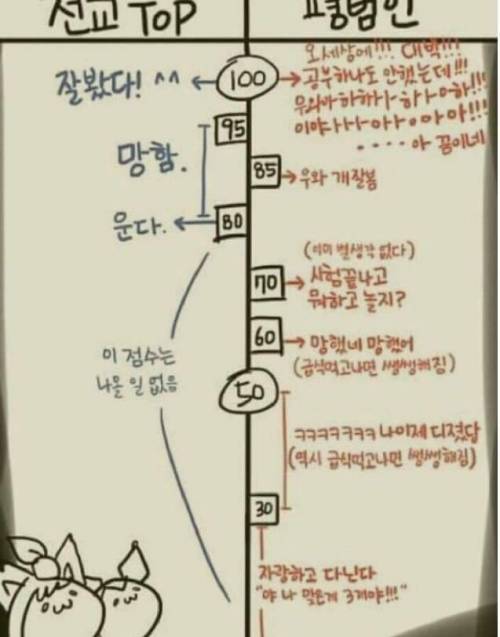 전교 TOP
평범인
100
잘봤다! ^^
오 세상에!!! 대박!!!
공부하나도 안했는데!!!
우와아하하하하하하!!!
이야ㅏㅏㅏ아ㅏ아아아!!!
....아 꿈이네
95
망함.
85
우와 개잘봄
80
운다.
(이미 별생각 없다)
70
시험끝나고
뭐하고 놀지?
60
망했네 망했어
(급식먹고나면 쌩쌩해짐)
이 점수는
나올 일 없음
50
ㅋㅋㅋㅋㅋㅋㅋ 나이제 디졌답
(역시 급식먹고나면 쌩쌩해짐)
30
자랑하고 다닌다
"야 나 맞은게 3개야!!!"